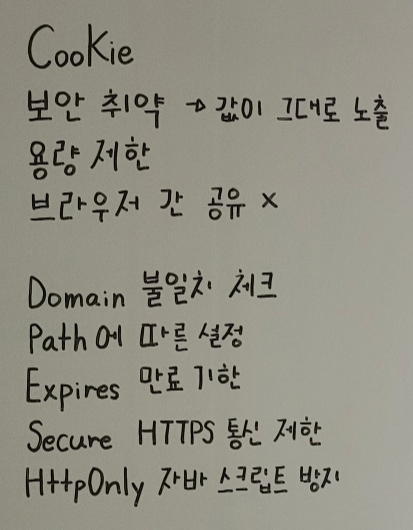 Cookie
보안 취약 → 값이 그대로 노출
용량 제한
브라우저 간 공유 X
Domain 불일치 체크
Path에 따른 설정
Expires 만료 기한
Secure HTTPS 통신 제한
HttpOnly 자바 스크립트 방지